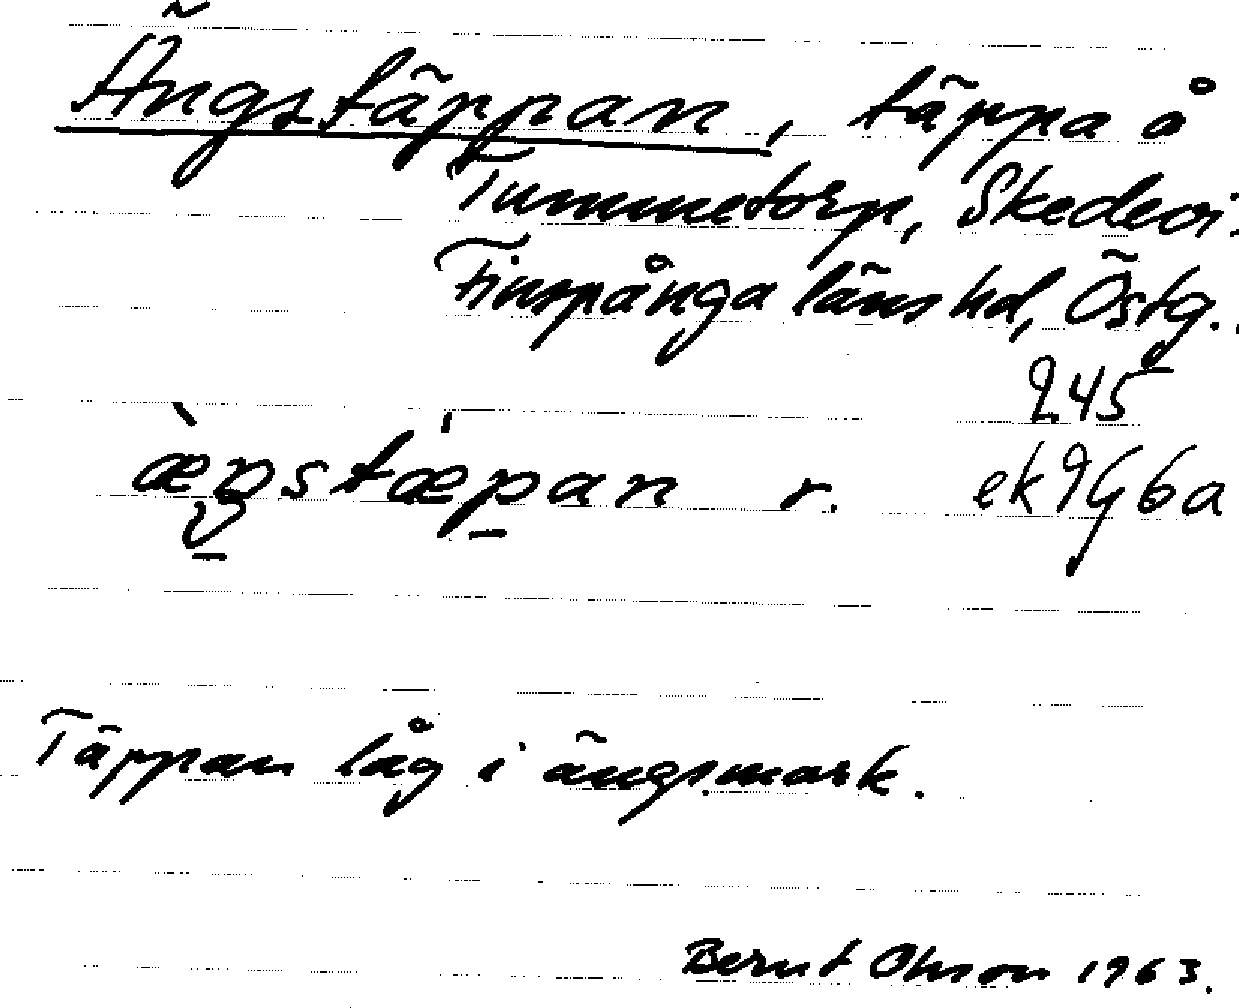 Ängstäppan, täppa å
Tummetorp, Skedevi.
Finspånga läns hd, Östg.
245
ek 9G6a
r.
Täppan låg i ängsmark.
Bernt Olsson 1963.